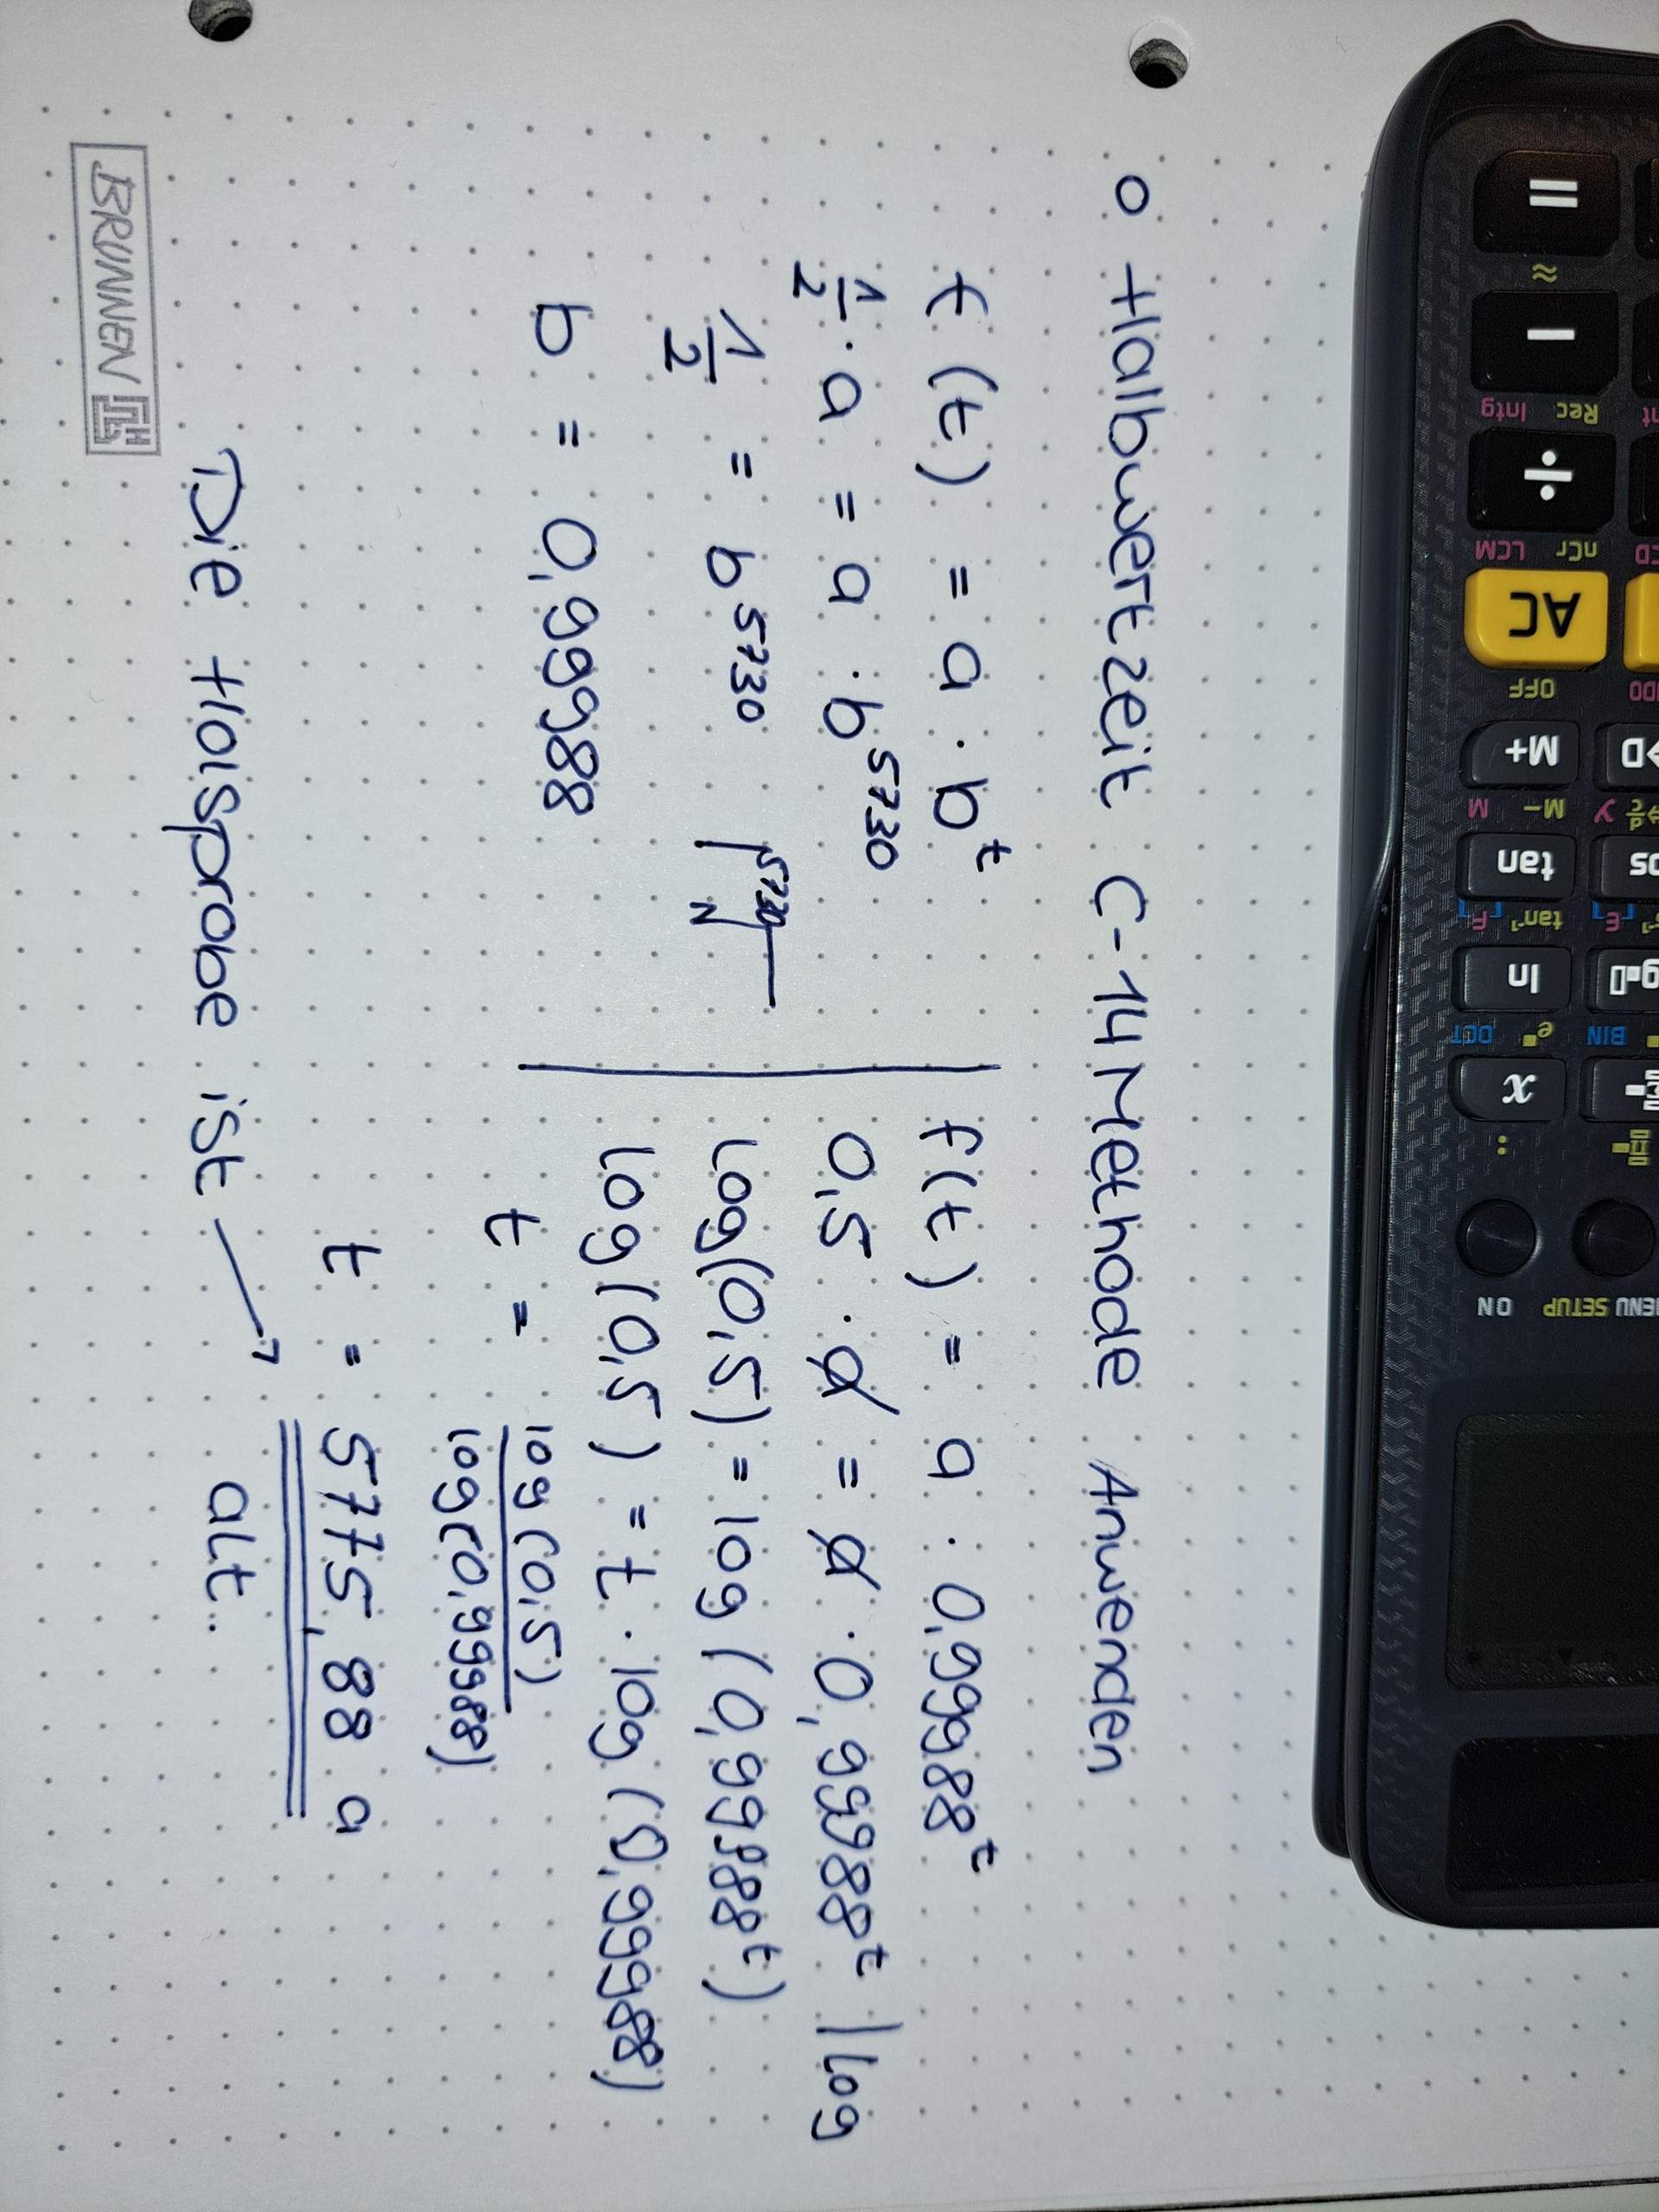 o Halbwertzeit C-14 Methode Anwenden
f(t) = a · b^t
1/2 · a = a · b^5730
1/2 = b^5730 5730√
b = 0,99988
f(t) = a · 0,99988^t
0,5 · a = a · 0,99988^t | log
log(0,5) = log(0,99988^t)
log(0,5) = t · log(0,99988)
t = log(0,5) / log(0,99988)
t = 5775,88 a
Die Holsprobe ist → alt.
BRUNNEN
=
≈
−
Rec Intg
÷
nCr LCM
AC
OFF
M+
M− M
tan
tan⁻¹ F
ln
e■ OCT
x
:
ON
MENU SETUP
BIN